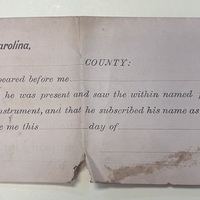 arolina,
COUNTY:
peared before me
he was present and saw the within named
nstrument, and that he subscribed his name as
e me this day of